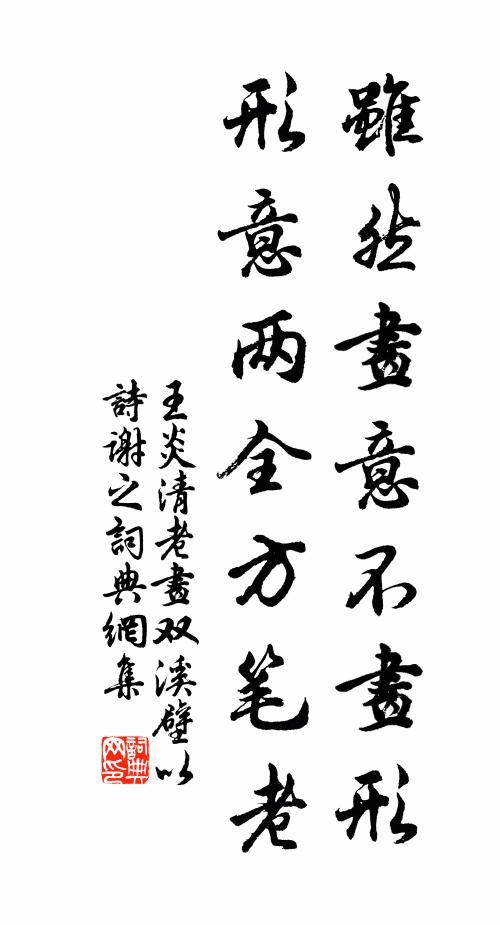 雖然畫意不畫形
形意两全方笔老
王炎清老畫双溪壁以
詩謝之詞典網集
詞典
网印